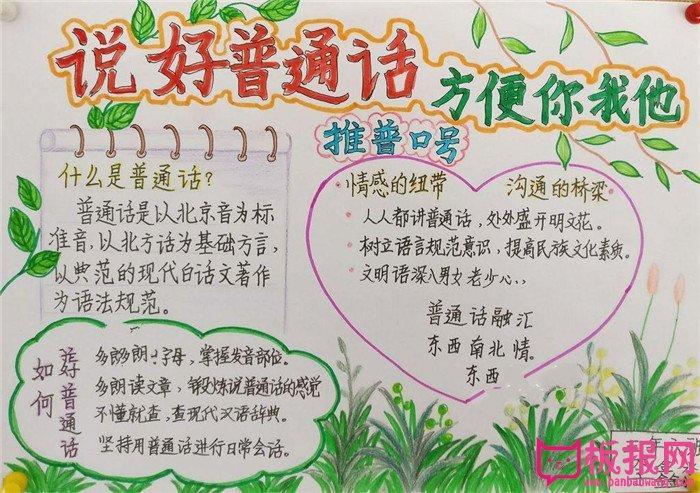 说好普通话
方便你我他
推普口号
什么是普通话?
普通话是以北京音为标
准音,以北方话为基础方言,
以典范的现代白话文著作
为语法规范。
·情感的纽带 沟通的桥梁·
·人人都讲普通话,处处盛开明文花。
·树立语言规范意识,提高民族文化素质。
·文明语深入男女老少心
普通话融汇
东西南北情。
东西
如何
好普通话
多朗字母,掌握发音部位。
多朗读文章,锻炼说普通话的感觉
不懂就查,查现代汉语辞典。
坚持用普通话进行日常会话。
板报网
www.banbaowang.com